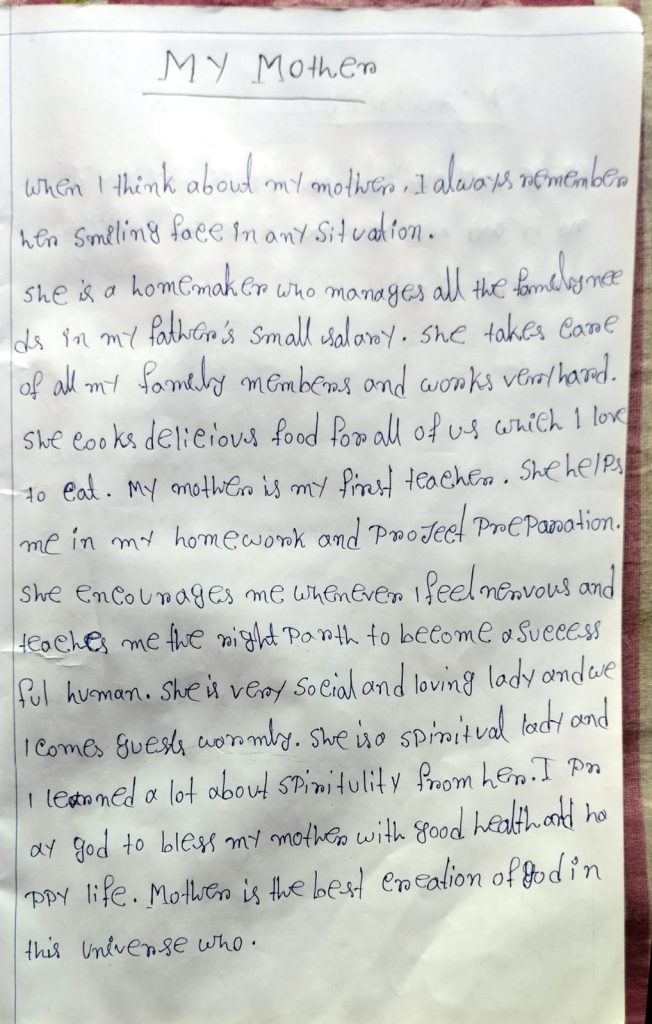 MY Mother
when I think about my mother, I always remember
her smiling face in any situation.
she is a homemaker who manages all the family nee
ds in my father's small salary. she takes care
of all my family members and works very hard.
she cooks delicious food for all of us which I love
to eat. My mother is my first teacher. she helps
me in my homework and project preparation.
she encourages me whenever I feel nervous and
teaches me the right parth to become a success
ful human. she is very social and loving lady and we
lcomes guests warmly. she is a spiritual lady and
I learned a lot about spiritulity from her. I pr
ay god to bless my mother with good health and ha
ppy life. Mother is the best creation of god in
this universe who.